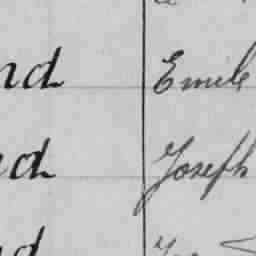 nd Emile
nd Joseph